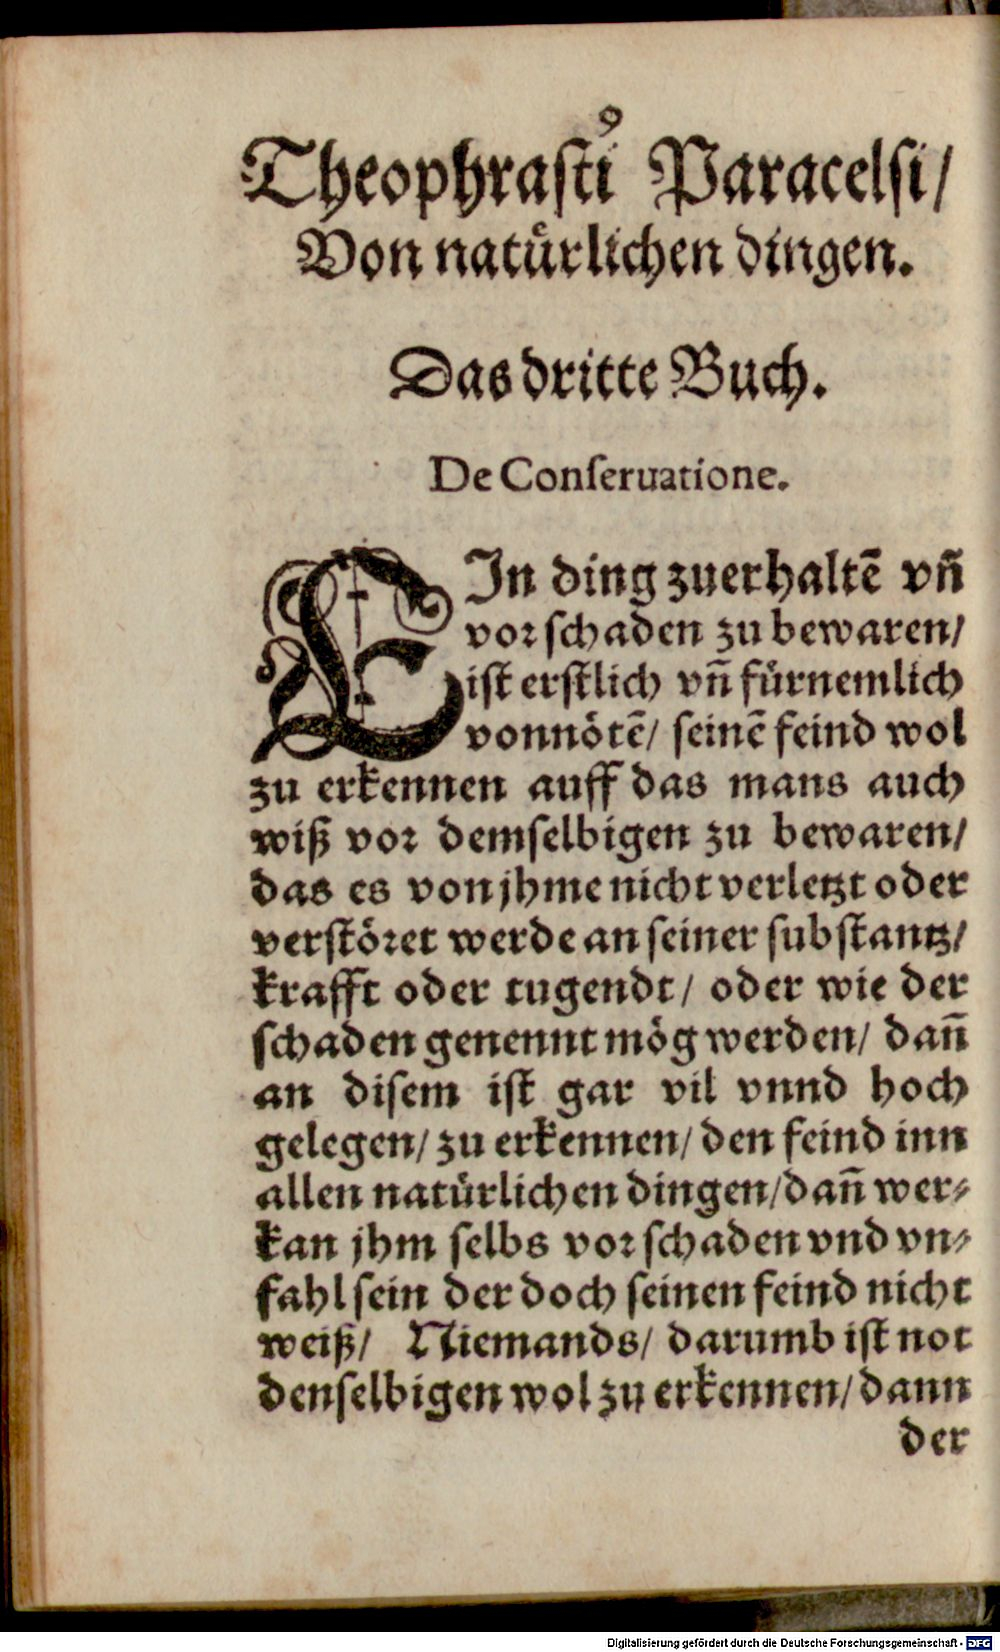 Theophrasti Paracelsi/
Von natürlichen dingen.
Das dritte Buch.
De Conseruatione.
EIn ding zuerhaltē vn̄
vor schaden zu bewaren/
ist erstlich vn̄ fürnemlich
vonnötē/ seinē feind wol
zu erkennen auff das mans auch
wiß vor demselbigen zu bewaren/
das es von jhme nicht verletzt oder
verstöret werde an seiner substantz/
krafft oder tugendt/ oder wie der
schaden genennt mög werden/ dan̄
an disem ist gar vil vnnd hoch
gelegen/ zu erkennen/ den feind inn
allen natürlichen dingen/ dan̄ wer⸗
kan jhm selbs vor schaden vnd vn⸗
fahl sein der doch seinen feind nicht
weiß/ Niemands/ darumb ist not
denselbigen wol zu erkennen/ dann
der
Digitalisierung gefördert durch die Deutsche Forschungsgemeinschaft - DFG